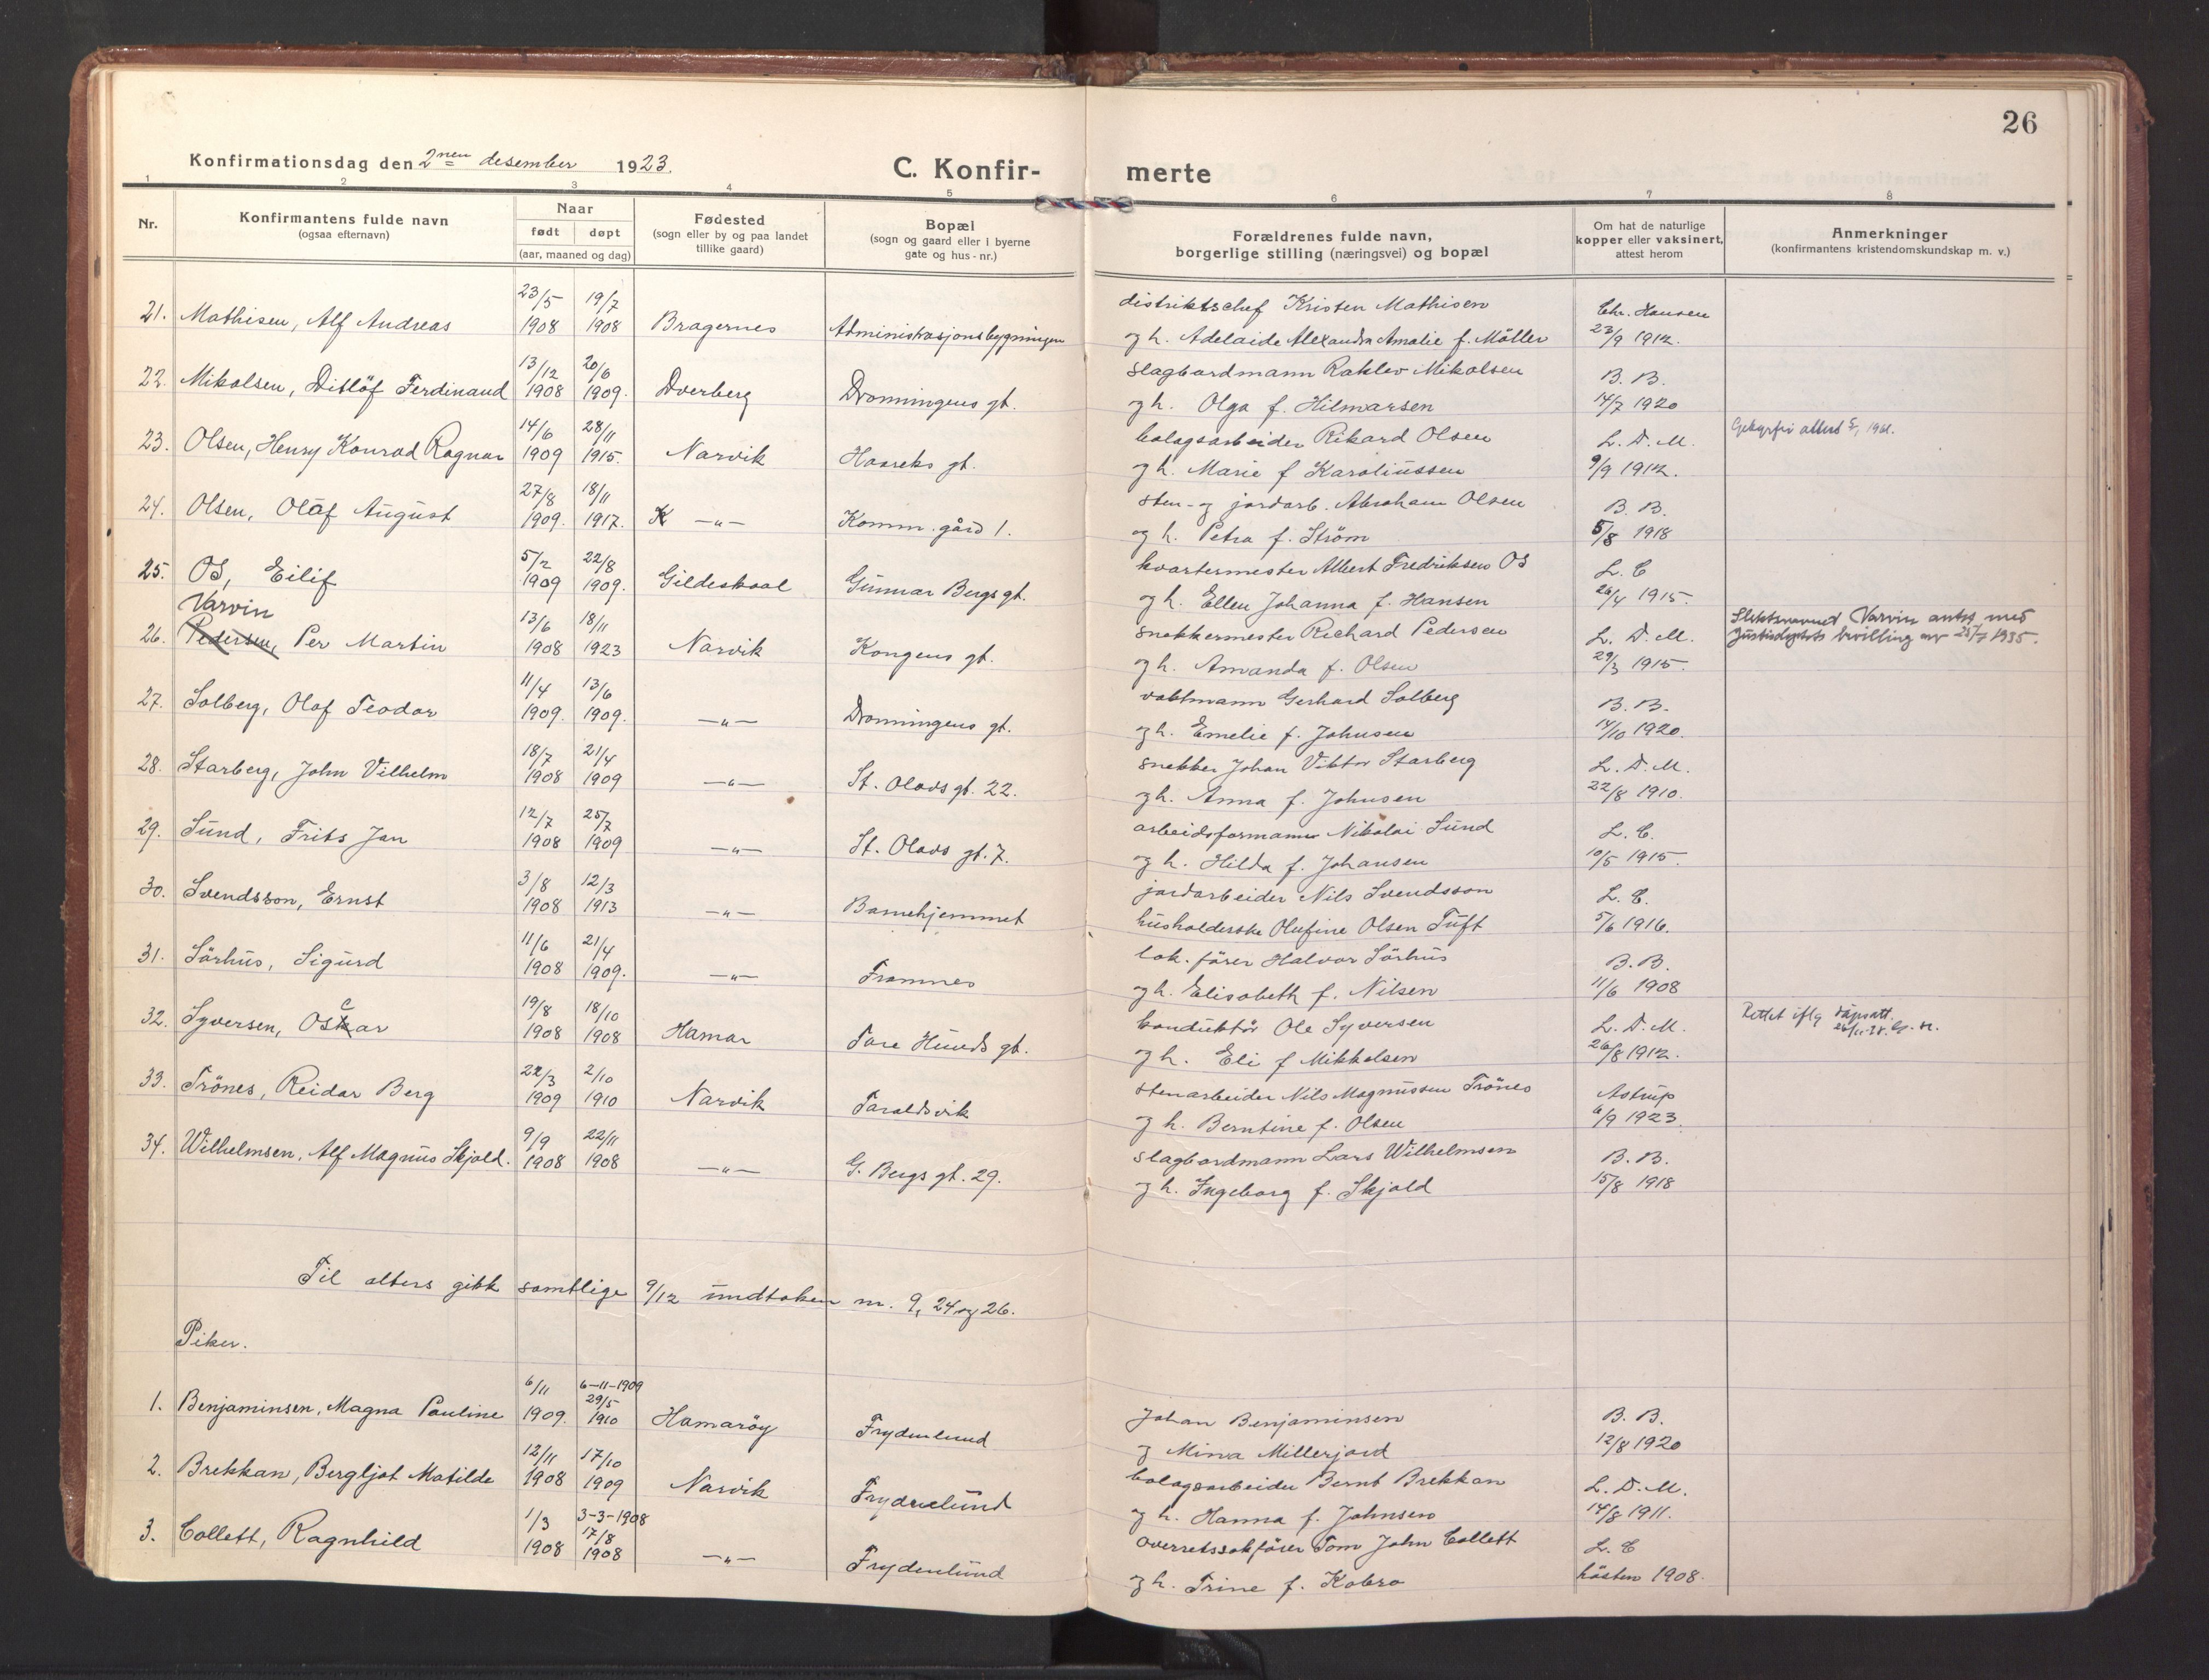 26
Konfirmationsdag den 2nen desember 1923. C. Konfir- merte
1 2 3 4 5 6 7 8
Nr. Konfirmantens fulde navn (ogsaa efternavn) Naar født døpt (aar, maaned og dag) Fødested (sogn eller by og paa landet tillike gaard) Bopæl (sogn og gaard eller i byerne gate og hus-nr.) Forældrenes fulde navn, borgerlige stilling (næringsvei) og bopæl Om hat de naturlige kopper eller vaksinert, attest herom Anmerkninger (konfirmantens kristendomskundskap m. v.)
21. Mathisen, Alf Andreas 23/5 1908 19/7 1908 Bragernes Administrasjonsbygningen distriktschef Kristen Mathisen Chr. Hansen
og h. Adelaide Alexandra Amalie f. Möller 23/9 1912.
22. Mikalsen, Ditlöf Ferdinand 13/12 1908 20/6 1909. Dverberg Dronningens gt. slagbordmann Raklev Mikalsen B. B.
og h. Olga f. Hilmarsen 14/7 1920
23. Olsen, Henry Konrad Ragnar 14/6 1909 28/11 1915. Narvik Haareks gt. bolagsarbeider Rikard Olsen L. D. M.
og h. Marie f Karoliussen 9/9 1912.
24. Olsen, Olaf August 27/8 1909. 18/11 1917. K —"— Komm. gård 1. sten- og jordarb. Abraham Olsen B. B.
og h. Petra f. Ström 5/8 1918
25. Os, Eilif 5/2 1909 22/8 1909. Gildeskaal Gunnar Bergs gt. kvartermester Albert Fredriksen Os L. C
og h. Ellen Johanna f. Hansen 26/4 1915.
Varvin
26. Pedersen, Per Martin 13/6 1908 18/11 1923 Narvik Kongens gt. snekkermester Richard Pedersen L. D. M. Slektsnavnet Varvin antatt med
og h. Amanda f. Olsen 29/3 1915. bevilling av 25/7 1935.
27. Solberg, Olaf Teodor 11/4 1909. 13/6 1909. —"— Dronningens gt. vaktmann Gerhard Solberg B. B.
og h. Emelie f. Johnsen 14/10 1920.
28. Starberg, John Vilhelm 18/7 1908 21/4 1909 —"— St. Olavs gt. 22. snekker Johan Viktor Starberg L. D. M.
og h. Anna f. Johnsen 22/8 1910.
29. Sund, Frits Jan 12/7 1908 25/7 1909 —"— St. Olavs gt. 7. arbeidsformann Nikolai Sund L. C.
og h. Hilda f. Johansen 10/5 1915.
30. Svendsson, Ernst 3/8 1908 12/3 1913 —"— Barnehjemmet jordarbeider Nils Svendsson L. C.
husholderske Olufine Olsen Tuft 5/6 1916.
31. Sörhus, Sigurd 11/6 1908 21/4 1909. —"— Framnes lok. förer Halvor Sörhus B. B.
og h. Elisabeth f. Nilsen 11/6 1908
32. Syversen, Oskar c 19/8 1908 18/10 1908 Hamar Tore Hunds gt. konduktör Ole Syversen L. D. M. Rettet iflg dåpsatt.
og h. Eli f Mikkelsen 26/8 1912.
33. Trönes, Reidar Berg 22/3 1909 2/10 1910 Narvik Taraldsvik stenarbeider Nils Magnussen Trönes Astrup
og h. Berntine f. Olsen 6/9 1923.
34. Wilhelmsen, Alf Magnus Skjold. 9/9 1908 22/11 1908 —"— G. Bergs gt. 29. slagbordmann Lars Wilhelmsen B. B.
og h. Ingeborg f. Skjold 15/8 1918
Til alters gikk samtlige 9/12 undtaken nr. 9, 24 og 26.
Piker.
1. Benjaminsen, Magna Pauline 6/11 1909. 6-11-1909 29/5 1910 Hamaröy Frydenlund Johan Benjaminsen B. B.
og Mina Millerjord 12/8 1920
2. Brekkan, Bergljot Matilde 12/11 1908 17/10 1909 Narvik Frydenlund bolagsarbeider Bernt Brekkan L. D. M.
og h. Hanna f. Johnsen 14/8 1911.
3. Collett, Ragnhild 1/3 1908 3-3-1908 17/8 1908 —"— Frydenlund overretssakförer Tom John Collett L. C
og h. Trine f. Kobro hösten 1908.